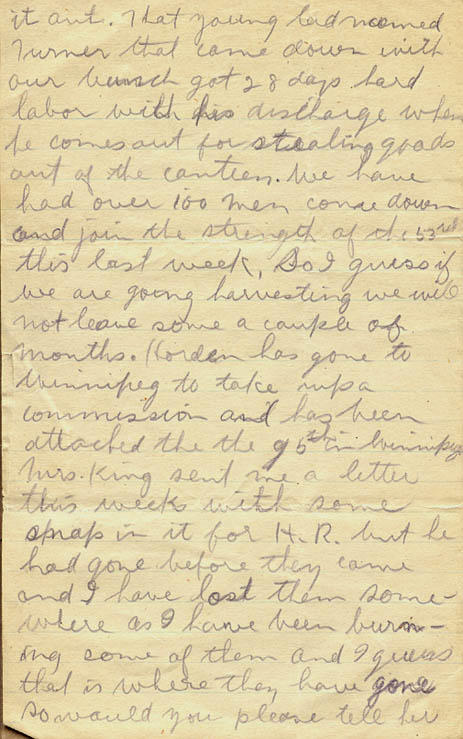 it out. That young lad named
Turner that came down with
our bunch got 28 days hard
labor with his discharge when
he comes out for stealing goods
out of the canteen. We have
had over 100 men come down
and join the strength of the 53rd
this last week, So I guess if
we are going harvesting we will
not leave some a couple of
months. Horden has gone to
Winnipeg to take up a
commission and has been
attached the the 95th in Winnipeg
Mrs. King sent me a letter
this weeks with some
snaps in it for H. R. but he
had gone before they came
and I have lost them some-
where as I have been burn-
ing some of them and I guess
that is where they have gone
so would you please tell her